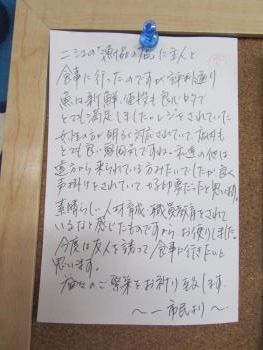 に主人と
食事に行ったのですが評判通り
魚は新鮮、値段も良心的で
とても満足しました。レジをされていた
女性の方が明るく対応されていて、店内も
とても良い雰囲気ですね。の他は
遠方から来られている方みたいでしたが良く
声掛りをされていて印象だったと思います。
素晴らしい人材育成、職員教育をされて
いるなと感じたものですからお便りしました。
今度は友人を誘って食事に行きたいと
思います。
のご繁栄をお祈り致します。
〜一市民より〜